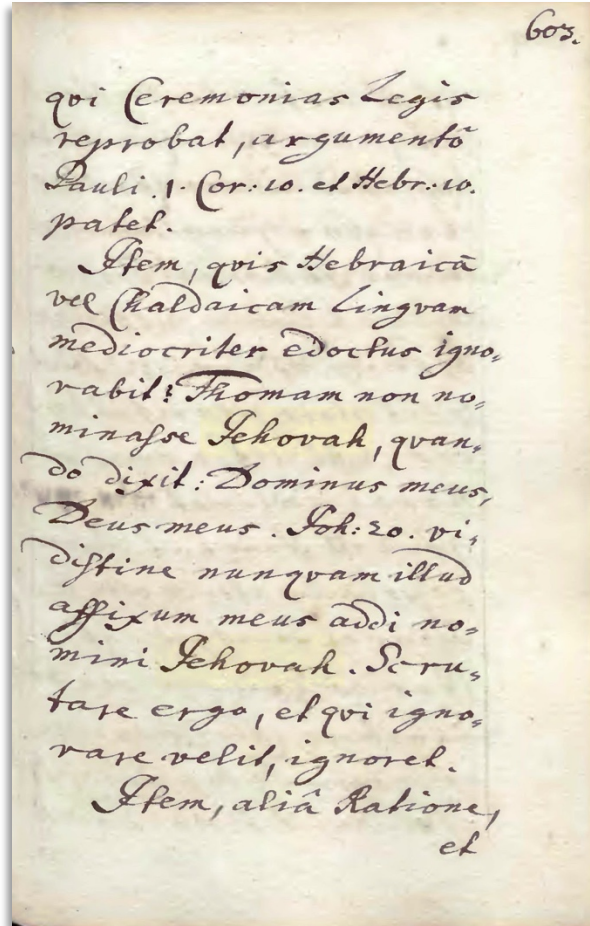 603.
qvi Ceremonias Legis
reprobat, argumentõ
Pauli. 1. Cor: 10. et Hebr: 10.
patet.
Item, qvis Hebraicã
vel Chaldaicam Lingvam
mediocriter edoctus igno-
rabit? Thomam non no-
minaſse Jehovah, qvan-
do dixit: Dominus meus,
Deus meus. Joh: 20. vi-
diſtine nunqvam illud
affixum meus addi no-
mini Jehovah. Scru-
tare ergo, et qvi igno-
rare velit, ignoret.
Item, aliâ Ratione,
et